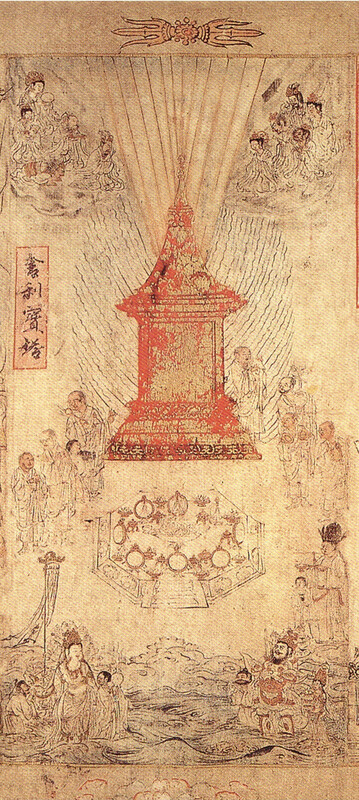 舍利寶塔